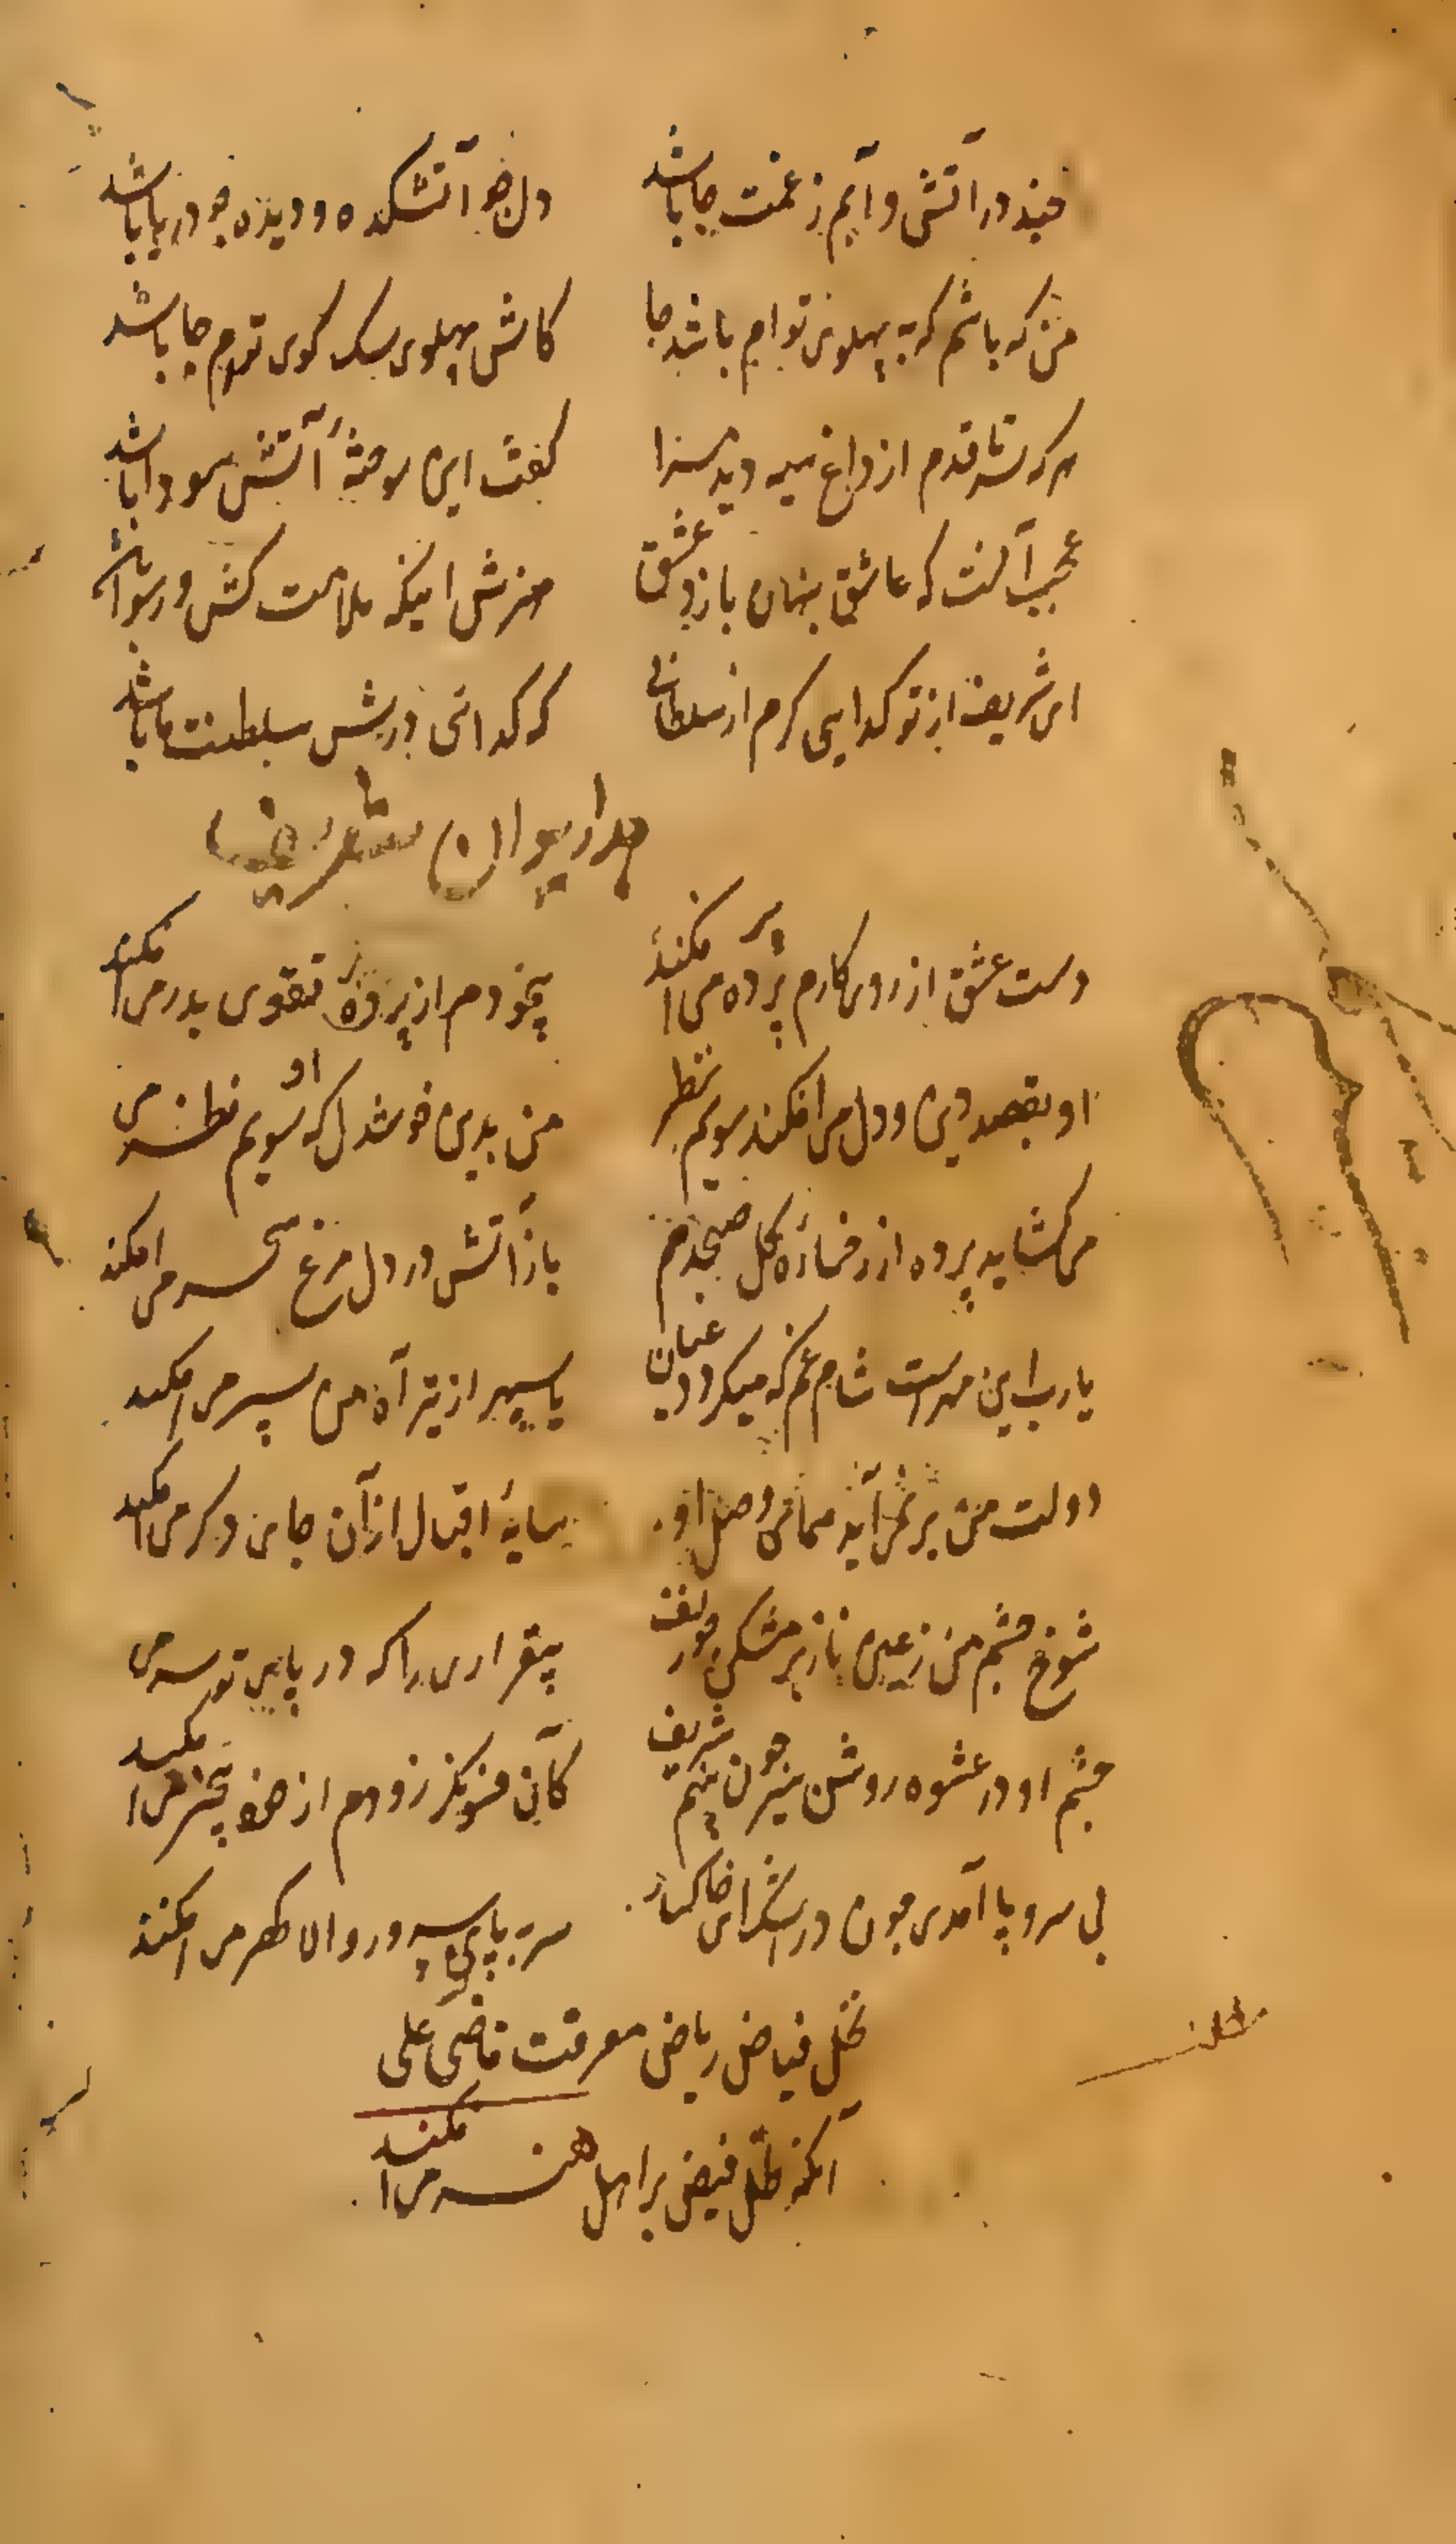 چند در آتش و آبم ز غمت جا باشد دل چو آتشکده و دیده چو دریا باشد
من که باشم که به پهلوی توام باشد جا کاش پهلوی سک کوی توام جا باشد
هر که قدم از داغ سیه دید مرا کفت این سوخته آتش سودا باشد
عجب آنست که عاشق پنهان بازد عشق هنرش اینکه ملامت کش و رسوا باشد
ای شریف از تو کدایی کرم از سلطانی که کدائی درش سلطنت ما باشد
دیوان شریف
دست عشق از روی کارم پرده می افکند بیخودم از پرده تقوی بدر می افکند
او بقصد دین و دل می افکند سویم نظر من بدین خوشدل که او سویم نظر می
می کشاید پرده از رخساره کل صبحدم باز آتش در دل مرغ سحر می افکند
یارب این مهر است شام غم که میکردد عیان یا سپهر از تیر آه من سپر می افکند
دولت من بر آید همای وصل او سایهٔ اقبال از آن جای دکر می افکند
شوخ چشم من ز عین ناز بر مشکین زلف بیقراری را که در پای تو سر می
چشم او در عشوه روشن چون شریف کان فسونکر زودم از خود بیخبر می افکند
بی سر و پا آمدی چون در ای خاکسار سر به پای سرور والا کهر می افکند
نخل فیاض ریاض معرفت قاضی علی
آنکه ظل فیض بر اهل هنر می افکند